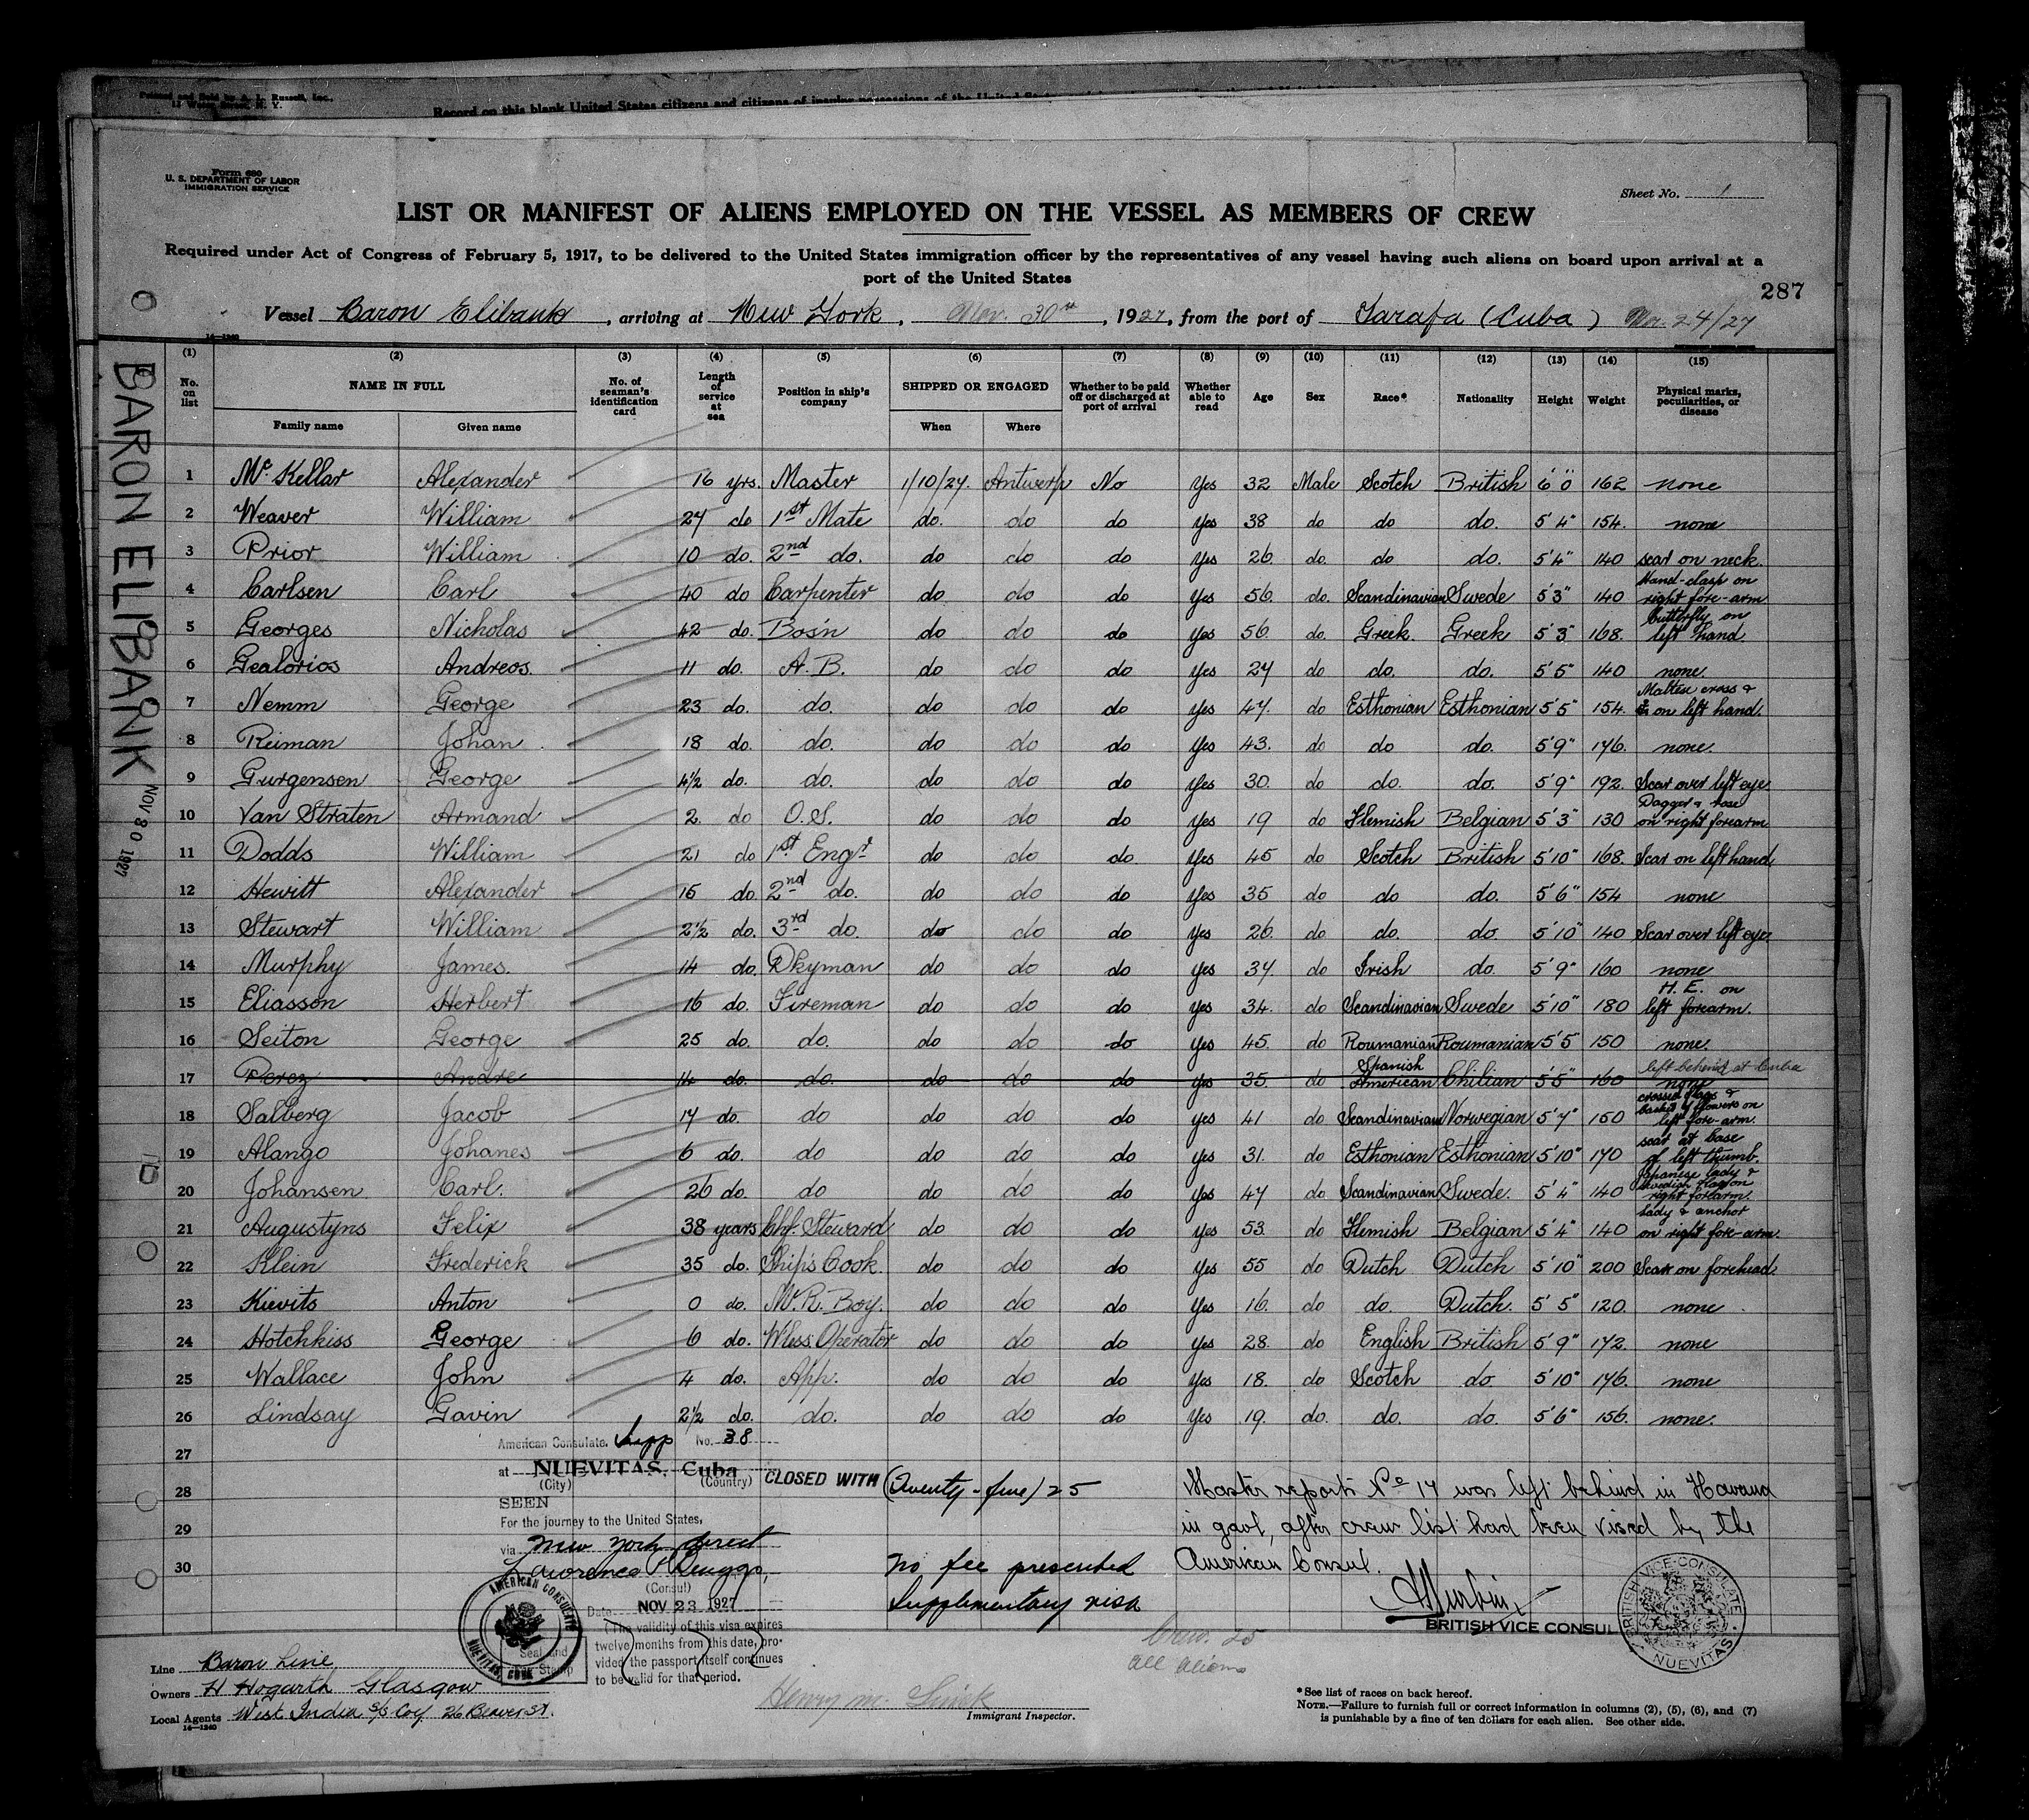 Printed and Sold by A. L. Russell, Inc.,
12 Water Street, N. Y.
Record on this blank United States citizens and citizens of insular possessions of the United States
Form 680
U. S. DEPARTMENT OF LABOR
IMMIGRATION SERVICE
Sheet No. 1
LIST OR MANIFEST OF ALIENS EMPLOYED ON THE VESSEL AS MEMBERS OF CREW
Required under Act of Congress of February 5, 1917, to be delivered to the United States immigration officer by the representatives of any vessel having such aliens on board upon arrival at a
port of the United States
287
Vessel Baron Elibank, arriving at New York, Nov. 30th, 1927, from the port of Tarafa (Cuba) Nov. 24/27
14—1240
(1) (2) (3) (4) (5) (6) (7) (8) (9) (10) (11) (12) (13) (14) (15)
No. on list NAME IN FULL No. of seaman's identification card Length of service at sea Position in ship's company SHIPPED OR ENGAGED Whether to be paid off or discharged at port of arrival Whether able to read Age Sex Race* Nationality Height Weight Physical marks, peculiarities, or disease
Family name Given name When Where
1 McKellar Alexander 16 yrs. Master 1/10/27. Antwerp No Yes 32 Male Scotch British 6'0" 162 none
2 Weaver William 27 do 1st Mate do. do do Yes 38 do do do. 5'4" 154. none
3 Prior William 10 do. 2nd do. do do do Yes 26. do. do do. 5'4" 140 scar on neck.
4 Carlsen Carl 40 do Carpenter do do do Yes 56. do. Scandinavian Swede 5'3" 140 Hand-clasp on right fore-arm
5 Georges Nicholas 42 do. Bos'n do do do Yes 56. do. Greek. Greek 5'3" 168. butterfly on left hand
6 Gealorios Andreos. 11 do. A. B. do do do Yes 27 do do. do. 5'5" 140 none.
7 Nemm George 23 do. do. do do do Yes 47. do Esthonian Esthonian 5'5" 154. Maltese cross & on left hand.
8 Reiman Johan 18 do. do. do do do Yes 43. do do do. 5'9" 176. none.
9 Gurgensen George 4½ do. do. do do do Yes 30. do do. do. 5'9" 192. Scar over left eye
10 Van Straten Armand 2. do O.S. do do do Yes 19 do Flemish Belgian 5'3" 130 Dagger & rose on right forearm
11 Dodds William 21 do 1st Engr do do do. Yes 45 do Scotch British 5'10" 168. Scar on left hand
12 Hewitt Alexander 15 do. 2nd do. do do do Yes 35 do do do. 5'6" 154 none
13 Stewart William 2½ do. 3rd do. do do do Yes 26. do do. do. 5'10" 140 Scar over left eye.
14 Murphy James. 14 do. Dkyman do do do Yes 37. do Irish do. 5'9" 160 none
15 Eliasson Herbert 16 do. Fireman do do do Yes 34. do Scandinavian Swede 5'10" 180 H. E. on left forearm.
16 Seiton George 25 do. do. do do do Yes 45. do Roumanian Roumanian 5'5" 150 none.
17 Perez Andre 14 do. do. do do do Yes 35. do Spanish American Chilian 5'5" 160 left behind at Cuba none
18 Salberg Jacob 17 do. do do do do Yes 41 do Scandinavian Norwegian 5'7" 150 crossed flags & basket of flowers on left fore-arm.
19 Alango Johanes 6 do. do do do do Yes 31. do Esthonian Esthonian 5'10" 170 scar at base of left thumb.
20 Johansen Carl. 26 do. do do do do Yes 47 do Scandinavian Swede. 5'4" 140 Japanese lady & Swedish flag on right forearm.
21 Augustyns Felix 38 years Chf. Steward do do do Yes 53. do Flemish Belgian 5'4" 140 lady & anchor on right fore-arm.
22 Klein Frederick 35 do. Ship's Cook. do do do Yes 55 do Dutch Dutch 5'10" 200 Scar on forehead.
23 Kievits Anton 0 do. M. R. Boy. do do do Yes 16. do do. Dutch. 5'5" 120. none
24 Hotchkiss George 6 do. W'less. Operator do do do Yes 28. do English British 5'9" 172. none
25 Wallace John 4 do. App. do do do Yes 18. do Scotch do 5'10" 176. none
26 Lindsay Gavin 2½ do. do. do do do Yes 19. do. do. do. 5'6" 156. none.
27
28
29
30
BARON ELIBANK
NOV 30 1927
American Consulate. Supp No. 38
at NUEVITAS, Cuba
(City) (Country)
SEEN
For the journey to the United States,
via New York direct
Lawrence P Briggs,
(Consul)
Date NOV 23 1927
(The validity of this visa expires
twelve months from this date, pro-
vided the passport itself continues
to be valid for that period.
Seal and
Stamp
AMERICAN CONSULATE
NUEVITAS, CUBA
CLOSED WITH (Twenty-five) 25
No fee presented
Supplementary visa
Master reports No 17 was left behind in Havana
in gaol, after crew list had been visèd by the
American Consul.
BRITISH VICE CONSUL
BRITISH VICE-CONSULATE
NUEVITAS
Crew. 25
All Aliens
Line Baron Line
Owners H Hogarth Glasgow
Local Agents West India S/S Coy 26 Beaver St.
14—1240
Henry M.
Immigrant Inspector.
*See list of races on back hereof.
NOTE.—Failure to furnish full or correct information in columns (2), (5), (6), and (7)
is punishable by a fine of ten dollars for each alien. See other side.